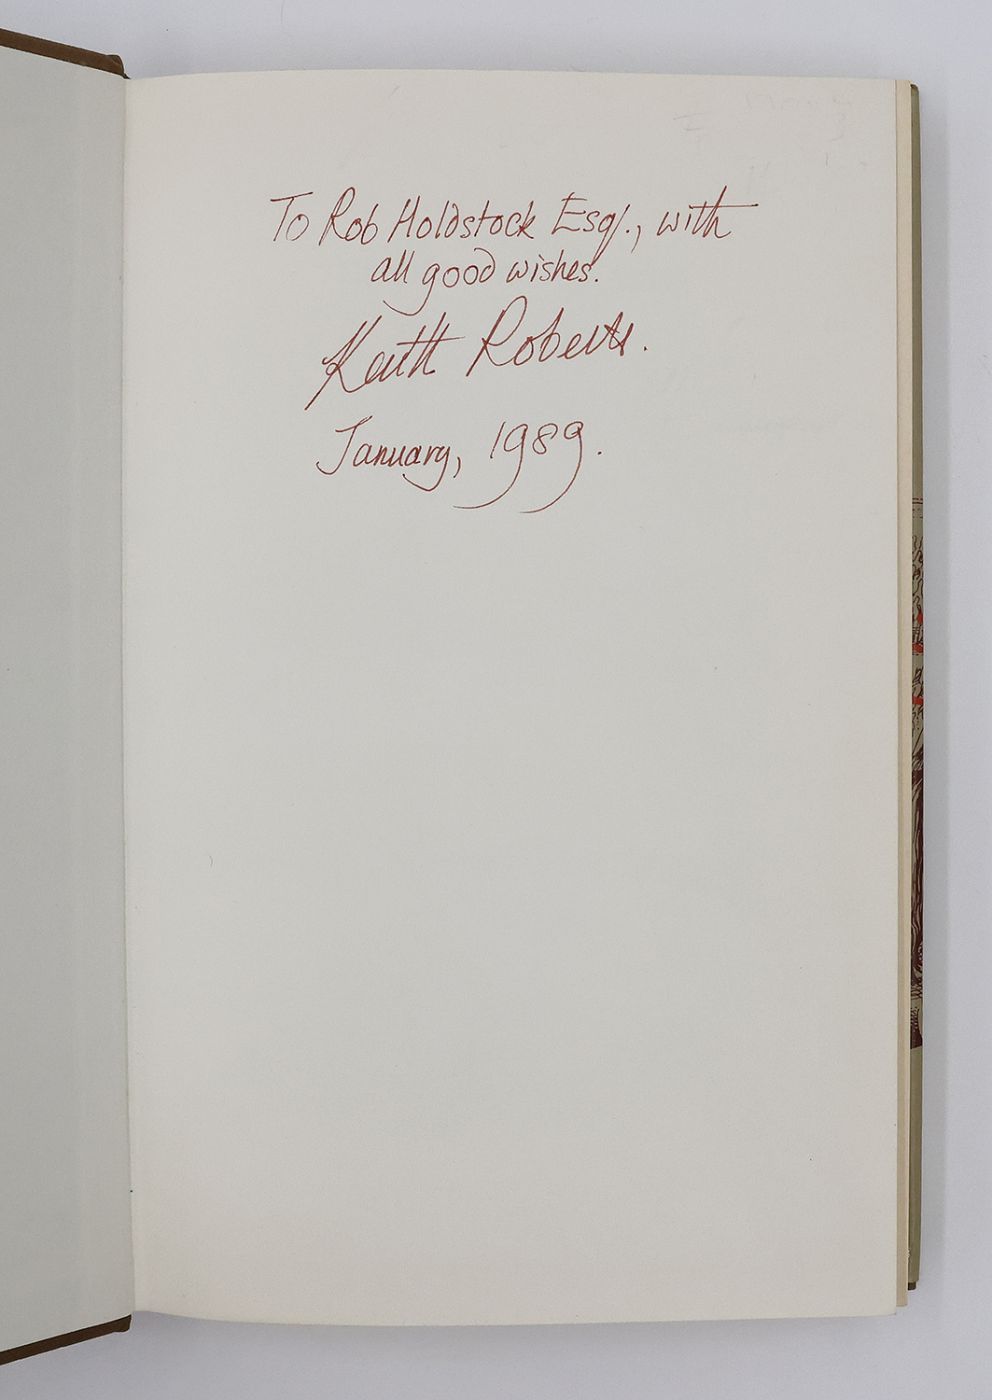 To Rob Holdstock Esq/., with
all good wishes.
Keith Roberts.
January, 1989.